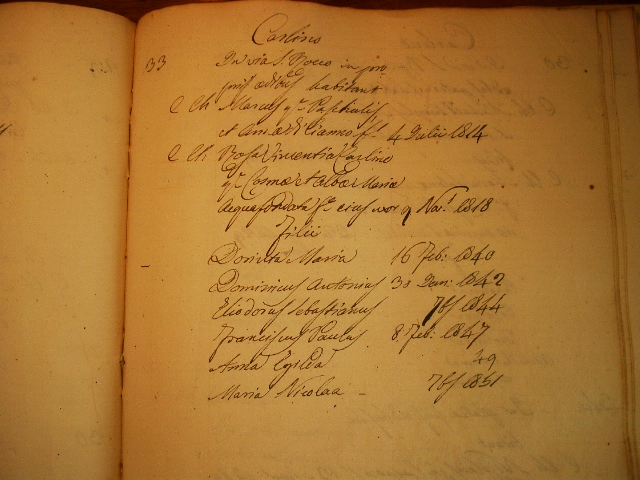 Carlino
33 In via S. Rocco in pro
prijs ædibus habitant
C Ch Marcus qm Paschalis
et Annæ Ilianno fs 4 Julii 1814
C Ch Rosa Vincentia Carlino
qm Cosmæ et Albæ Mariæ
Acquafondata fa ejus uxor 9 Nov. 1818
Filii
Donata Maria 16 Feb: 1840
Dominicus Antonius 30 Jan: 1842
Eliodorus Sebastianus 7bs 1844
Franciscus Paulus 8 Feb: 1847
Anna Egilda 49
Maria Nicolaa - 7bs 1851